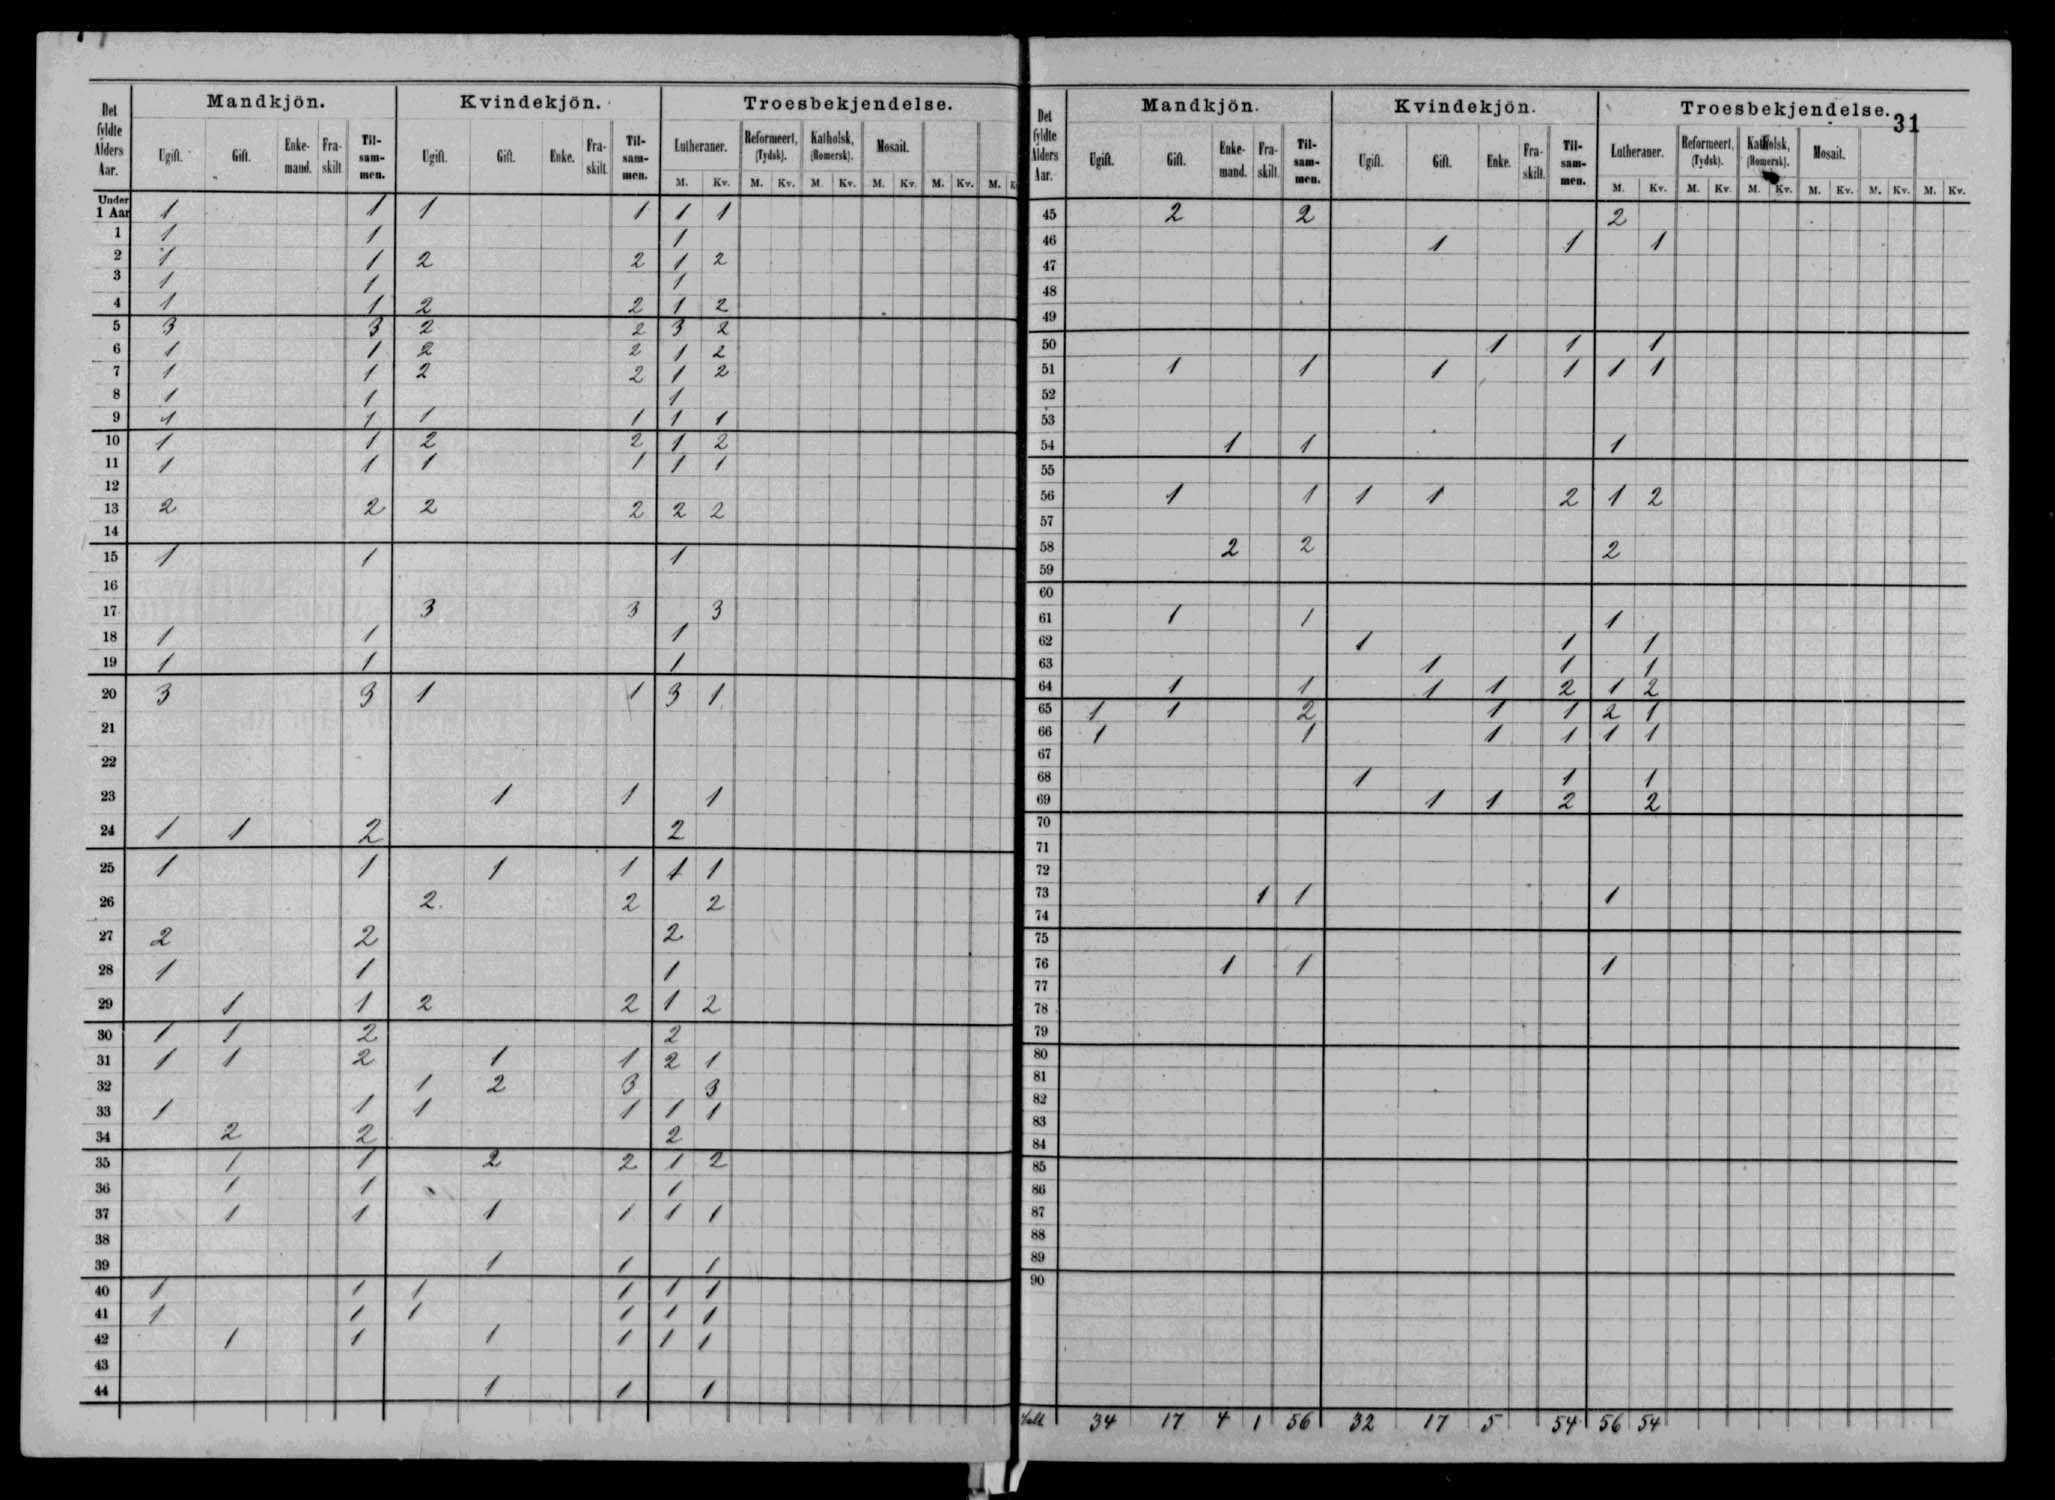 31
Det fyldte Alders Aar. Mandkjön. Kvindekjön. Troesbekjendelse.
Ugift. Gift. Enke-mand. Fra-skilt. Til-sam-men. Ugift. Gift. Enke. Fra-skilt. Til-sam-men. Lutheraner. Reformeert, (Tydsk). Katholsk, (Romersk). Mosait.
M. Kv. M. Kv. M. Kv. M. Kv. M. Kv. M.
Under 1 Aar 1 1 1 1 1 1
1 1 1 1
2 1 1 2 2 1 2
3 1 1 1
4 1 1 2 2 1 2
5 3 3 2 2 3 2
6 1 1 2 2 1 2
7 1 1 2 2 1 2
8 1 1 1
9 1 1 1 1 1 1
10 1 1 2 2 1 2
11 1 1 1 1 1 1
12
13 2 2 2 2 2 2
14
15 1 1 1
16
17 3 3 3
18 1 1 1
19 1 1 1
20 3 3 1 1 3 1
21
22
23 1 1 1
24 1 1 2 2
25 1 1 1 1 1 1
26 2 2 2
27 2 2 2
28 1 1 1
29 1 1 2 2 1 2
30 1 1 2 2
31 1 1 2 1 1 2 1
32 1 2 3 3
33 1 1 1 1 1 1
34 2 2 2
35 1 1 2 2 1 2
36 1 1 1
37 1 1 1 1 1 1
38
39 1 1 1
40 1 1 1 1 1 1
41 1 1 1 1 1 1
42 1 1 1 1 1 1
43
44 1 1 1
Det fyldte Alders Aar. Mandkjön. Kvindekjön. Troesbekjendelse.
Ugift. Gift. Enke-mand. Fra-skilt. Til-sam-men. Ugift. Gift. Enke. Fra-skilt. Til-sam-men. Lutheraner. Reformeert, (Tydsk). Katholsk, (Romersk). Mosait.
M. Kv. M. Kv. M. Kv. M. Kv. M. Kv. M. Kv.
45 2 2 2
46 1 1 1
47
48
49
50 1 1 1
51 1 1 1 1 1 1
52
53
54 1 1 1
55
56 1 1 1 1 2 1 2
57
58 2 2 2
59
60
61 1 1 1
62 1 1 1
63 1 1 1
64 1 1 1 1 2 1 2
65 1 1 2 1 1 2 1
66 1 1 1 1 1 1
67
68 1 1 1
69 1 1 2 2
70
71
72
73 1 1 1
74
75
76 1 1 1
77
78
79
80
81
82
83
84
85
86
87
88
89
90
34 17 4 1 56 32 17 5 54 56 54